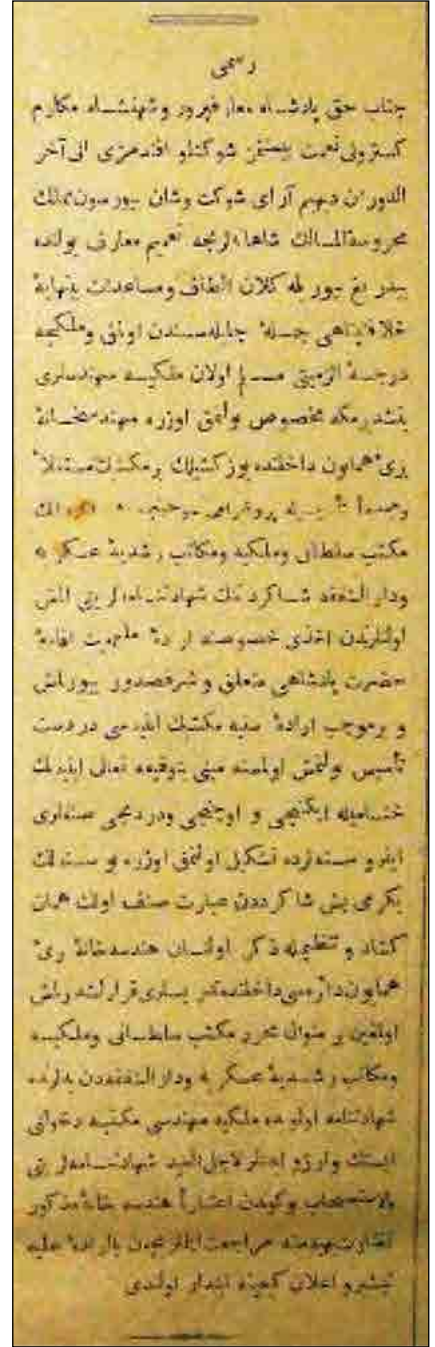 رسمی
جناب حق پادشاه معارفپرور و شهنشاه مكارم
كستر ولی نعمت بیمنتمز شوكتلو افندمزی الی آخر
الدوران دیهیم آرای شوكت وشان بیورسون ممالك
محروسة المسالك شاهانه‌لرنجه تعمیم معارف یولنده
بیدریغ بیوریله كلان الطاف ومساعدات بینهایهٔ
خلافتپناهی جملهٔ جلیله‌سندن اولمق وملكجه
درجهٔ الزمیتی مسلم اولان ملكیه مهندسلری
یتشدیرمكه مخصوص اولمق اوزره مهندسخانهٔ
بریٔ همایون داخلنده یوز كشیلك بر مكتبك مستقلاً
ومجدداً تأسیسیله پروغرامی موجبنجه
مكتب سلطانی وملكیه ومكاتب رشدیهٔ عسكریه
ودار الشفقه شاكرداننك شهادتنامه‌لرینی المش
اولنلرندن اخذی خصوصنه ارادهٔ
حضرت پادشاهی متعلق و شرفصدور بیورلمش
و برموجب ارادهٔ سنیه مكتبك ابنیه‌سی دردست
تأسیس بولنمش اولمسنه مبنی بتوفیقه تعالی ابنیه‌نك
ختامیله ایكنجی و اوچنجی ودردنجی صنفلری
ایلرو سنه‌لرده تشكیل اولنمق اوزره بو سنه‌لك
یكرمی بش شاكرددن عبارت صنف اولك همان
كشاد و تنظیمله ذكر اولنان هندسه‌خانهٔ بریٔ
همایون دائره‌سی داخلنده تدریسلری قرارلشدیرلمش
اولمغین بر منوال محرر مكتب سلطانی وملكیه
ومكاتب رشدیهٔ عسكریه ودار الشفقه‌دن یدلرنده
شهادتنامه اولوبده ملكیه مهندسی مكتبنه دخولی
ایستك وارزو ایدنلر لاجل القید شهادتنامه‌لرینی
بالاستصحاب بوكوندن اعتباراً هندسه خانهٔ مذكور
نظارت بهیه‌سنه مراجعت ایتلریچون بارادهٔ علیه
نشر و اعلان كیفیته ابتدار اولندی